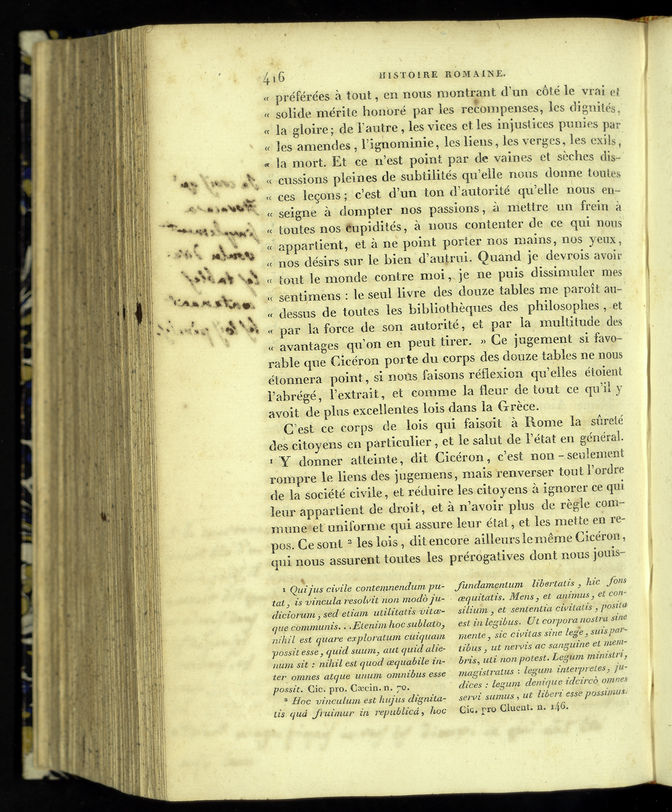 416
HISTOIRE ROMAINE.
« préférées à tout, en nous montrant d'un côté le vrai et
« solide mérite honoré par les recompenses, les dignités,
« la gloire; de l'autre, les vices et les injustices punies par
« les amendes, l'ignominie, les liens, les verges, les exils,
« la mort. Et ce n'est point par de vaines et sèches dis-
« cussions pleines de subtilités qu'elle nous donne toutes
« ces leçons; c'est d'un ton d'autorité qu'elle nous en-
« seigne à dompter nos passions, à mettre un frein à
« toutes nos cupidités, à nous contenter de ce qui nous
« appartient, et à ne point porter nos mains, nos yeux,
« nos désirs sur le bien d'autrui. Quand je devrois avoir
« tout le monde contre moi, je ne puis dissimuler mes
« sentimens : le seul livre des douze tables me paroît au-
« dessus de toutes les bibliothèques des philosophes, et
« par la force de son autorité, et par la multitude des
« avantages qu'on en peut tirer. » Ce jugement si favo-
rable que Cicéron porte du corps des douze tables ne nous
étonnera point, si nous faisons réflexion qu'elles étoient
l'abrégé, l'extrait, et comme la fleur de tout ce qu'il y
avoit de plus excellentes lois dans la Grèce.
C'est ce corps de lois qui faisoit à Rome la sûreté
des citoyens en particulier, et le salut de l'état en général.
¹ Y donner atteinte, dit Cicéron, c'est non-seulement
rompre le liens des jugemens, mais renverser tout l'ordre
de la société civile, et réduire les citoyens à ignorer ce qui
leur appartient de droit, et à n'avoir plus de règle com-
mune et uniforme qui assure leur état, et les mette en re-
pos. Ce sont ² les lois, dit encore ailleurs le même Cicéron,
qui nous assurent toutes les prérogatives dont nous jouis-
¹ Qui jus civile contemnendum pu-
tat, is vincula resolvit non modò ju-
diciorum, sed etiam utilitatis vitæ-
que communis... Etenim hoc sublato,
nihil est quare exploratum cuiquam
possit esse, quid suum, aut quid alie-
num sit : nihil est quod æquabile in-
ter omnes atque unum omnibus esse
possit. Cic. pro. Cæcin. n. 70.
² Hoc vinculum est hujus dignita-
tis quâ fruimur in republicâ, hoc
fundamentum libertatis, hic fons
æquitatis. Mens, et animus, et con-
silium, et sententia civitatis, posita
est in legibus. Ut corpora nostra sine
mente, sic civitas sine lege, suis par-
tibus, ut nervis ac sanguine et mem-
bris, uti non potest. Legum ministri,
magistratus : legum interpretes, ju-
dices : legum denique idcircò omnes
servi sumus, ut liberi esse possimus.
Cic. pro Cluent. n. 146.